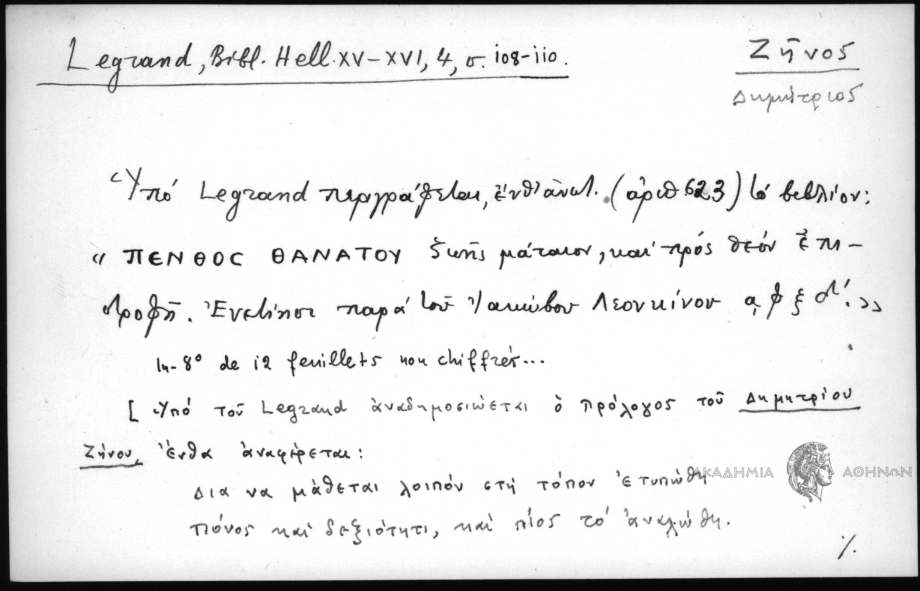 Legrand, Bibl. Hell. XV-XVI, 4, σ. 108-110.
Ζῆνος
Δημήτριος
Ὑπό Legrand περιγράφεται, ἔνθ' ἀνωτ. (ἀριθ 623) τό βιβλίον:
« ΠΕΝΘΟC ΘΑΝΑΤΟΥ ζωῆς μάταιον, καί πρός θεόν ἐπι-
στροφή. Ἐνετίησι παρά τοῦ Ἰακώβου Λεονκίνου α φ ξ δ'. »
In-8° de 12 feuillets non chiffrés...
[ Ὑπό τοῦ Legrand ἀναδημοσιεύεται ὁ πρόλογος τοῦ Δημητρίου
Ζήνου, ἔνθα ἀναφέρεται:
Δια να μάθεται λοιπόν στή τόπον ἐτυπώθη
πόνος καί δεξιότητι, καί πίος τό ἀναλώθη.
ΑΚΑΔΗΜΙΑ ΑΘΗΝΩΝ
%.